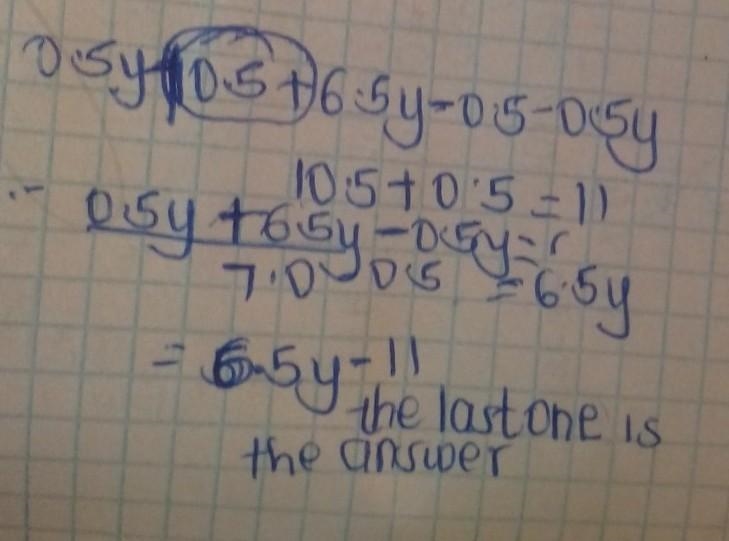 0.5y-10.5+6.5y-0.5-0.5y
10.5+0.5=11
0.5y+6.5y-0.5y=
7.0 0.5 =6.5y
= 6.5y-11
the last one is
the answer